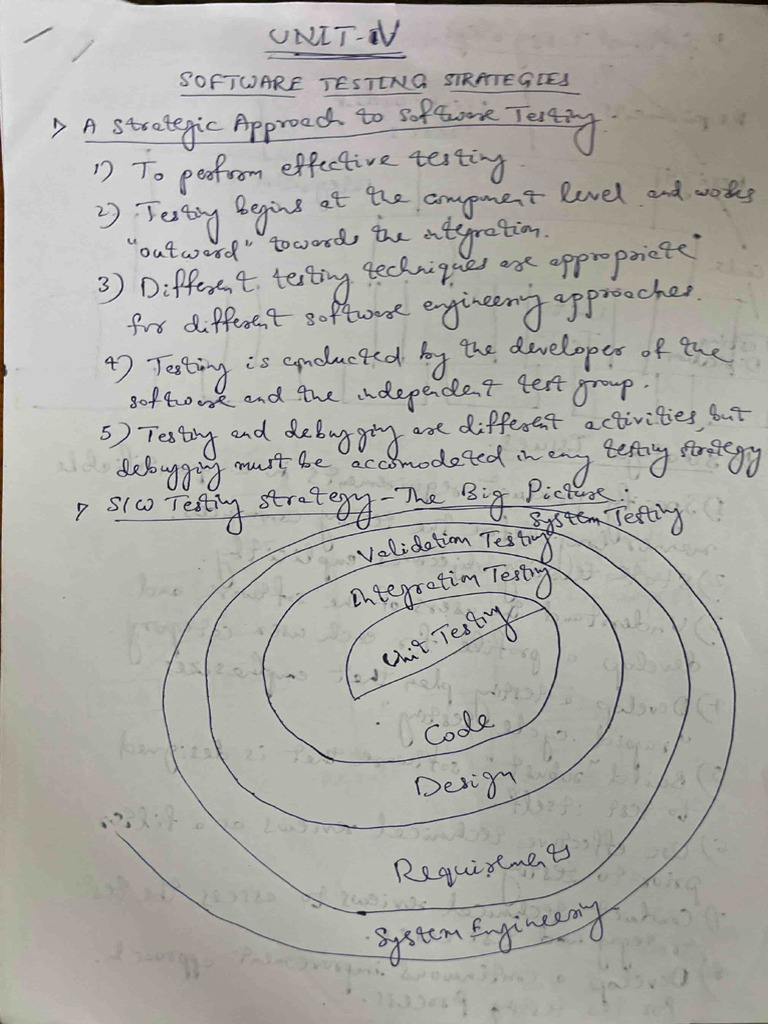 UNIT-IV
SOFTWARE TESTING STRATEGIES
> A Strategic Approach to Software Testing.
1) To perform effective testing.
2) Testing begins at the component level and works
"outward" towards the integration.
3) Different testing techniques are appropriate
for different software engineering approaches.
4) Testing is conducted by the developer of the
software and the independent test group.
5) Testing and debugging are different activities, but
debugging must be accomodated in any testing strategy
> S/W Testing strategy - The Big Picture:
System Testing
Validation Testing
Integration Testing
Unit Testing
Code
Design
Requirements
System Engineering